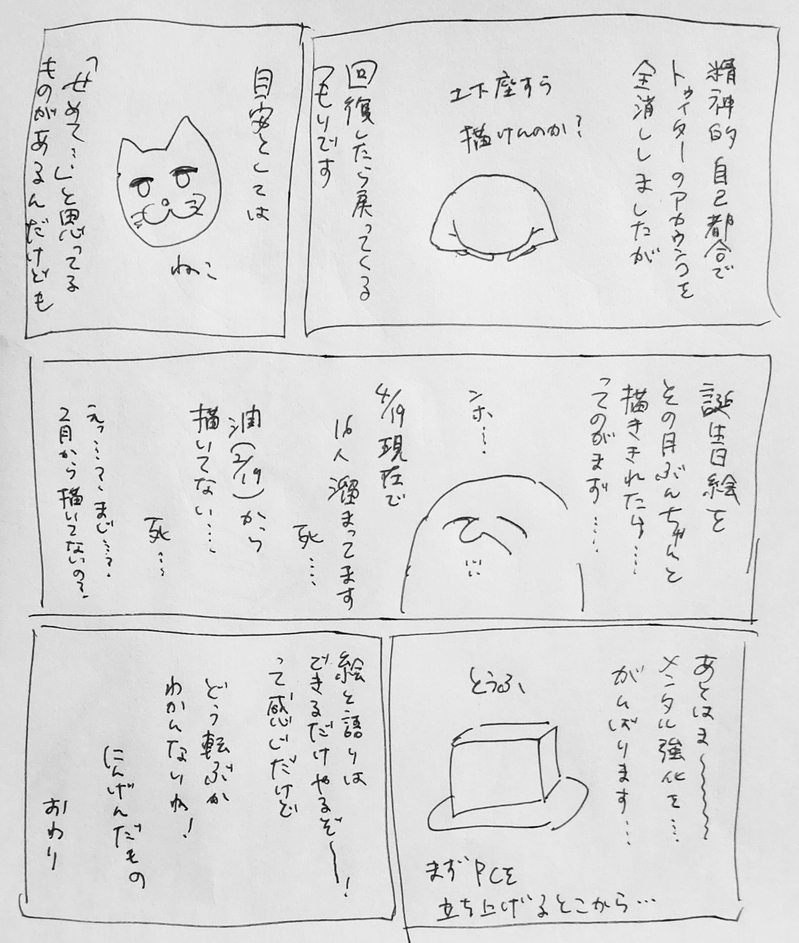 精神的自己都合で
トゥイターのアカウントを
全消ししましたが
土下座すら
描けんのか?
回復したら戻ってくる
つもりです
目安としては
ねこ
「せめて…」と思ってる
ものがあるんだけども
誕生日絵を
その月ぶんちゃんと
描ききれたら……
ってのがまず……
ンホ…
4/19現在で
16人溜まってます
死…
油(2/19)から
描いてない……
死…
えっ…?まじ…?
2月から描いてないの?
あとはま〜〜〜
メンタル強化を…
がんばります…
とうふ
まずPCを
立ち上げるとこから…
絵と語りは
できるだけやるぞ〜〜!
って感じだけど
どう転ぶか
わかんないね!
にんげんだもの
おわり